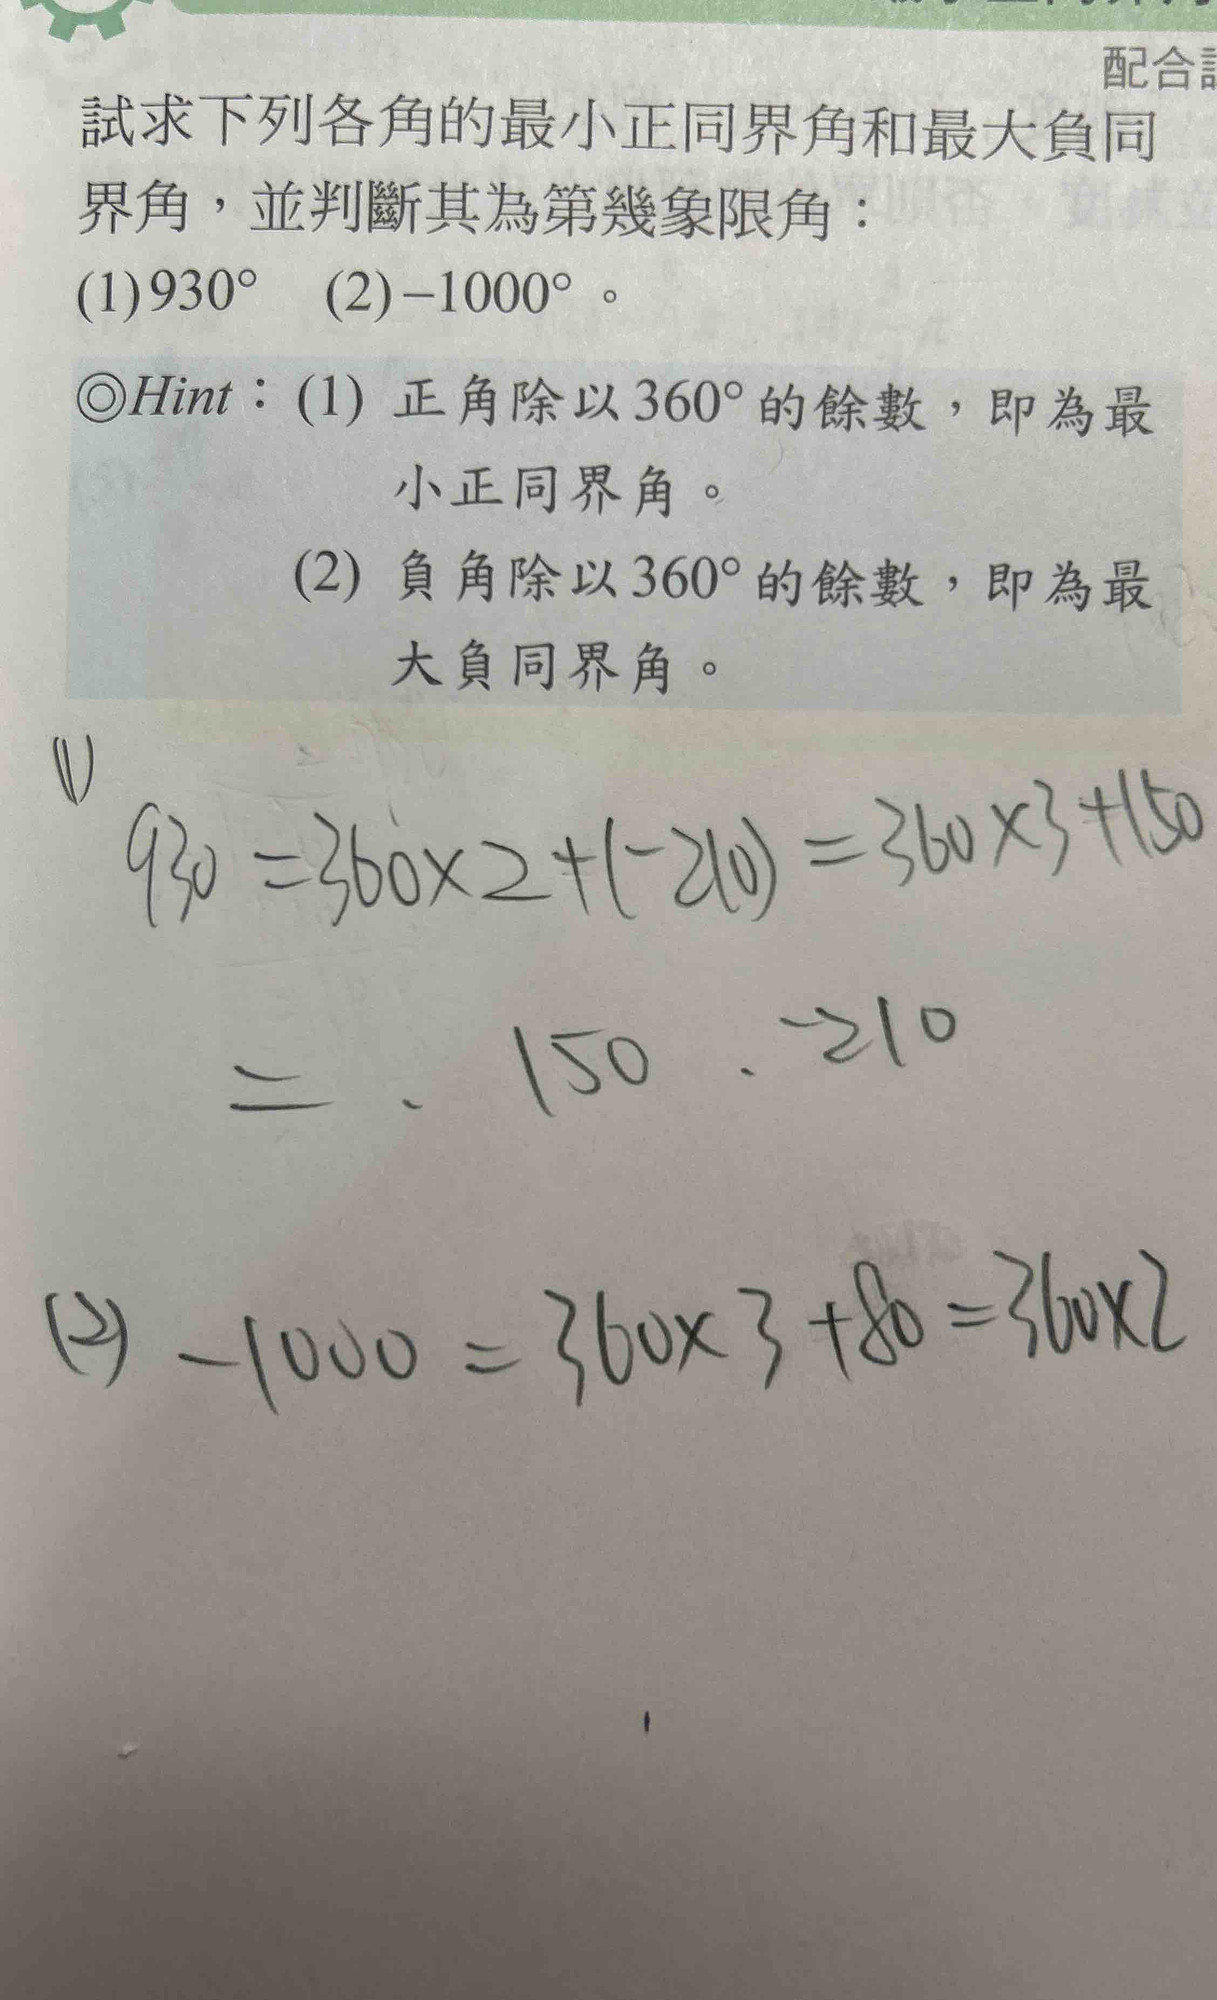 配合
試求下列各角的最小正同界角和最大負同
界角，並判斷其為第幾象限角：
(1)930° (2)−1000°。
◎Hint：(1) 正角除以360°的餘數，即為最
小正同界角。
(2) 負角除以360°的餘數，即為最
大負同界角。
(1)
930 = 360×2+(-210) = 360×3+150
= . 150 . -210
(2) -1000 = 360×3+80 = 360×2